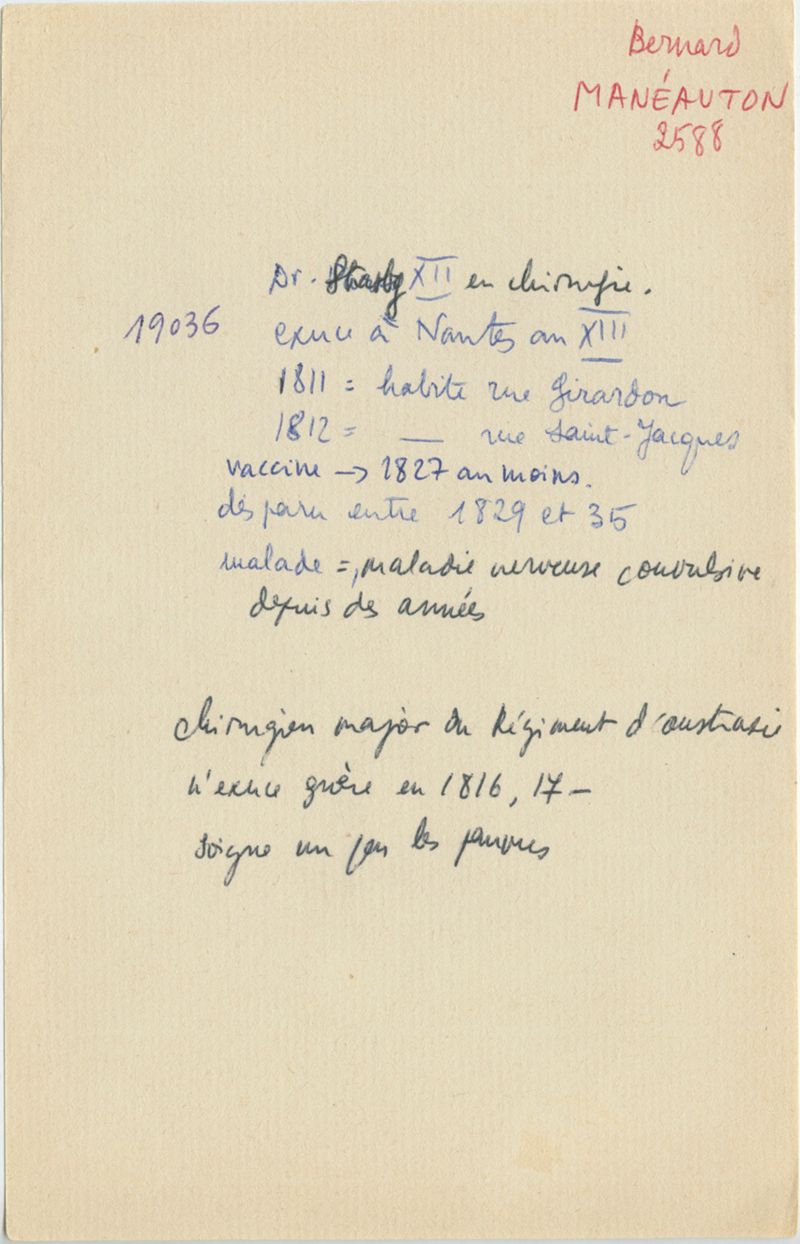 Bernard
MANÉAUTON
2588
Dr. Strasbg XII en chirurgie.
19036
exerce à Nantes an XIII
1811 = habite rue Girardon
1812 = — rue Saint-Jacques
vaccine → 1827 au moins.
disparu entre 1829 et 35
malade =, maladie nerveuse convulsive
depuis des années
chirurgien major du Régiment d'austrasie
n'exerce guère en 1816, 17 —
soigne un peu les pauvres